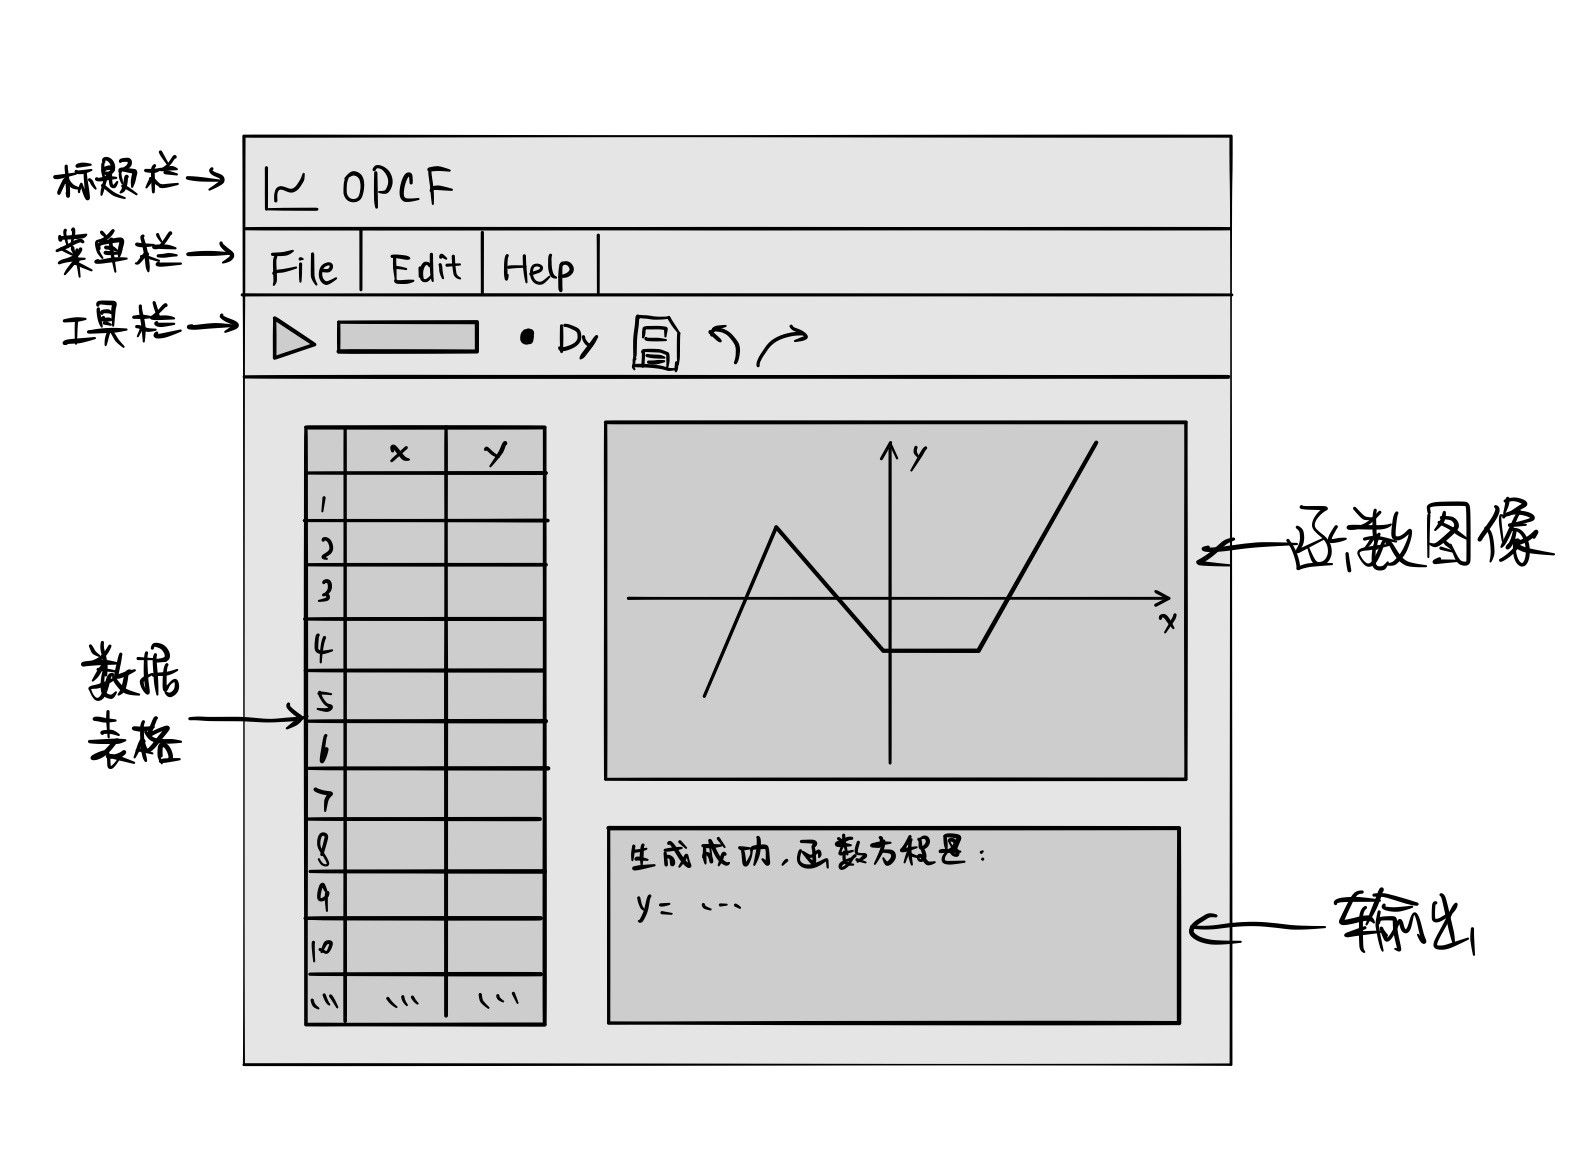 标题栏
OPCF
菜单栏
File Edit Help
工具栏
Dy
x y
1
2
3
4
5
6
7
8
9
10
数据
表格
y
x
函数图像
生成成功,函数方程是:
y= ...
输出